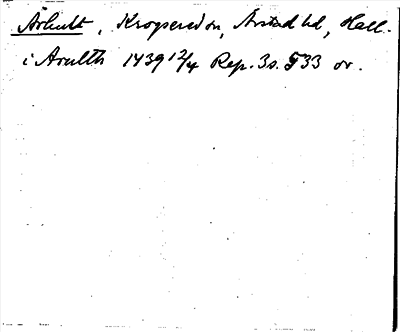 Århult, Kropsered sn, Årstad hd, Hall.
i Arulth 1439 12/4 Rep. 3 s. 533 or.